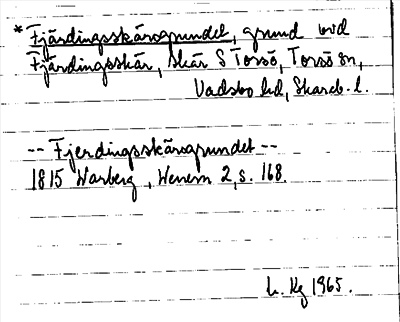 *Fjärdingsskärsgrundet, grund vid
Fjärdingsskär, skär S Torsö, Torsö sn,
Vadsbo hd, Skarab. l.
-- Fjerdingsskärsgrundet --
1815 Warberg, Wenern 2, s. 168.
L. Kg 1965.